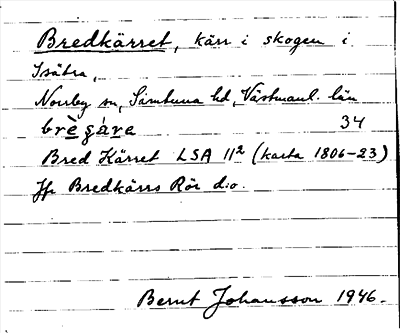 Bredkärret, kärr i skogen i
Isätra,
Norrby sn, Simtuna hd, Västmanl. län
brègára 34
Bred Kärret LSA 11² (karta 1806-23)
Jfr Bredkärrs Rör d:o.
Bernt Johansson 1946.